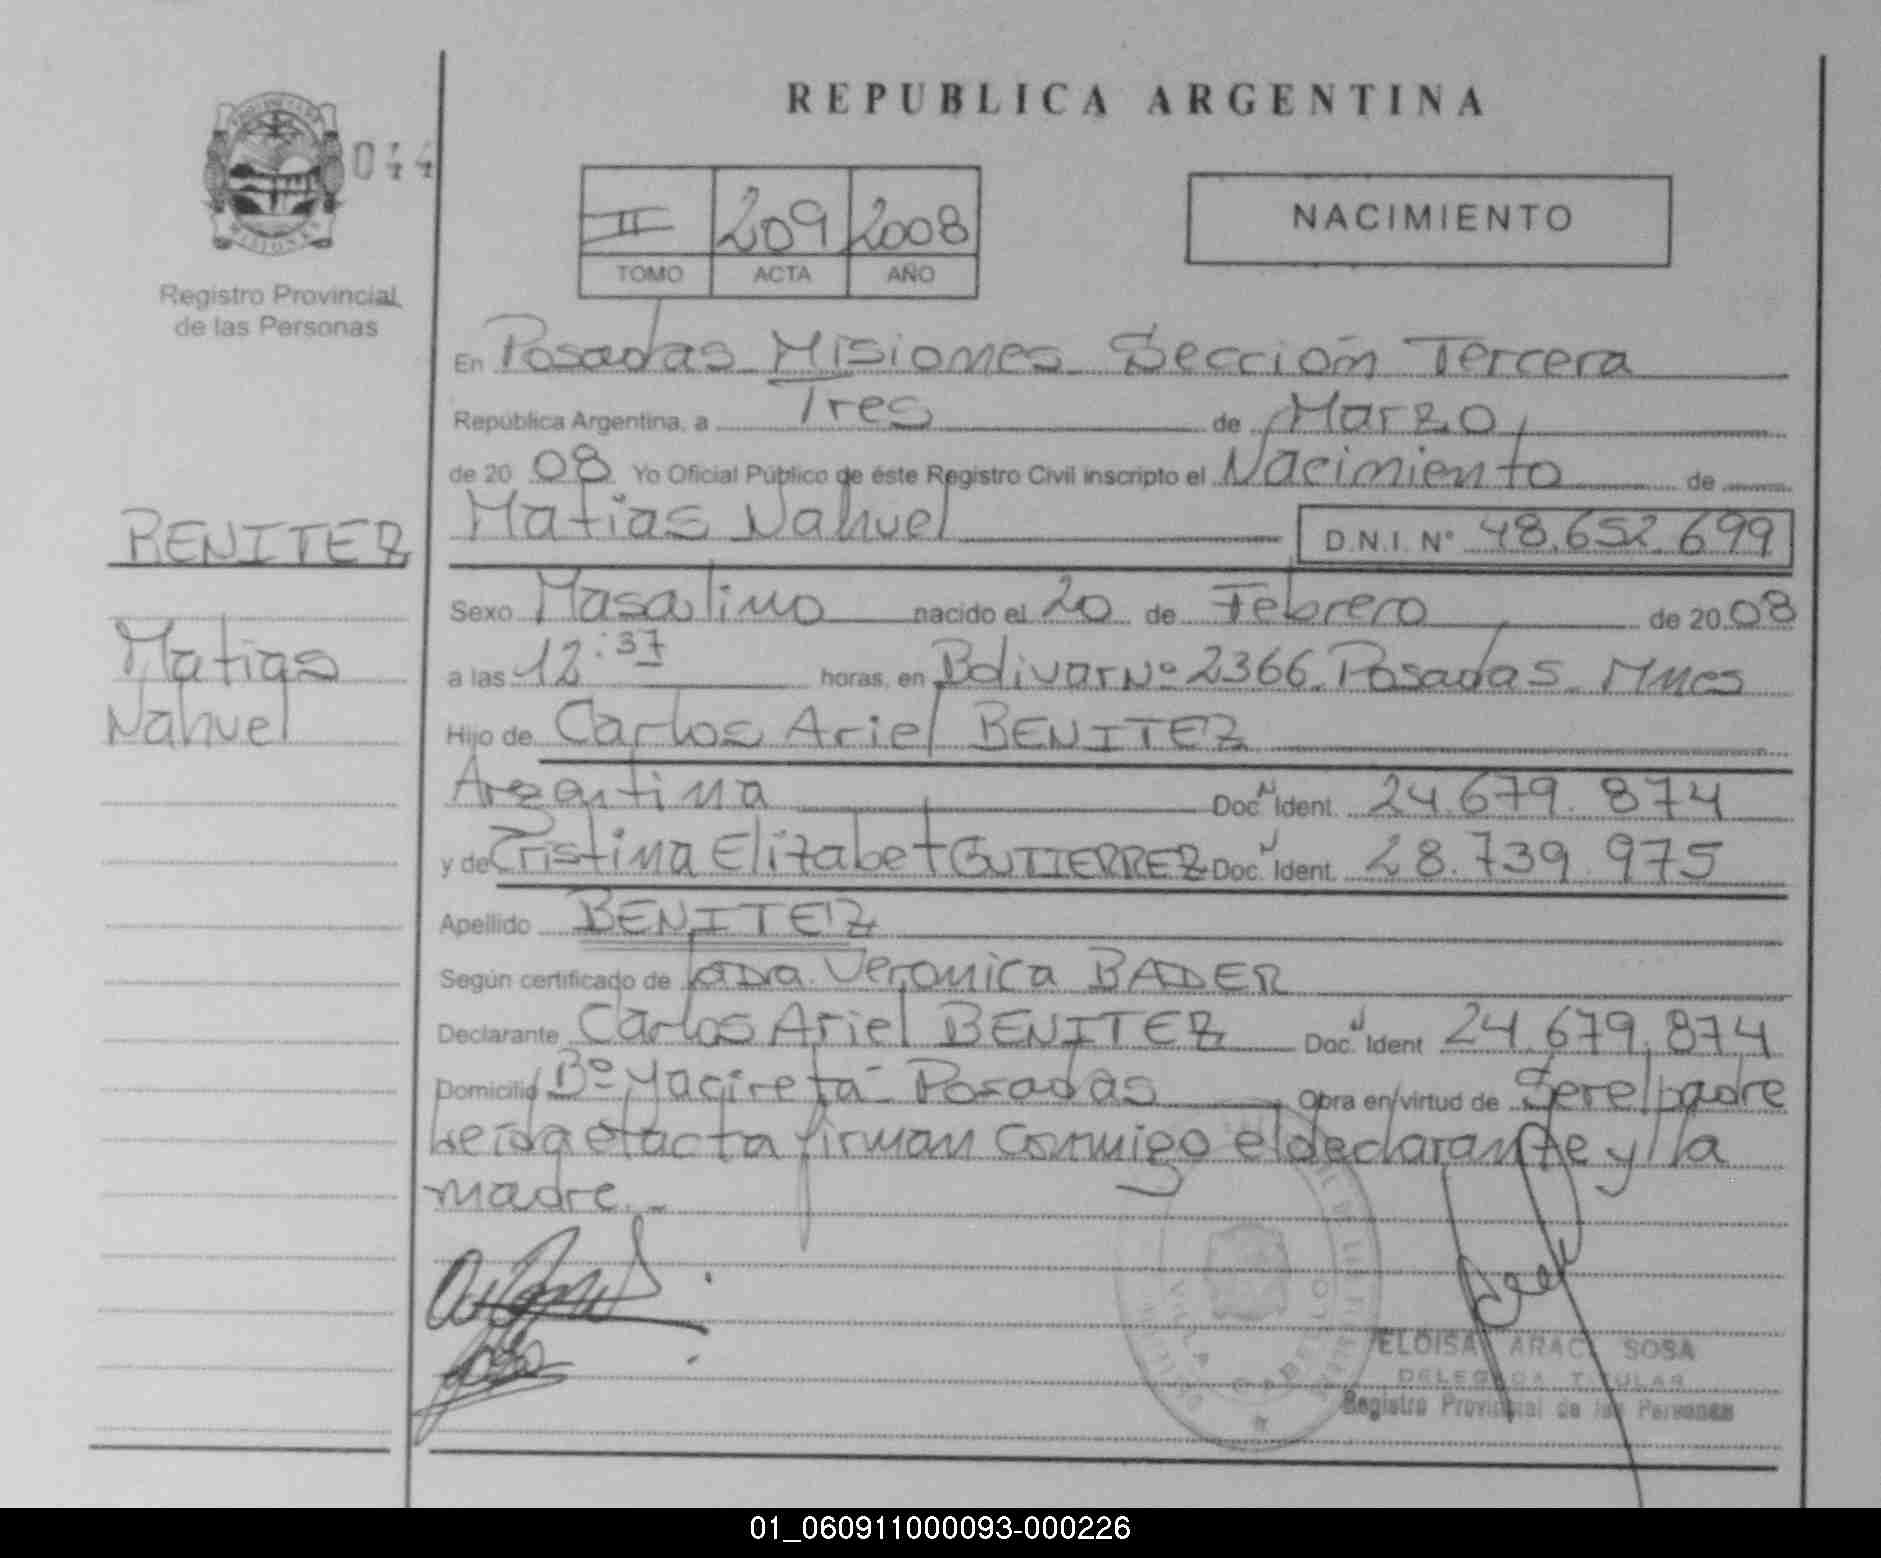 REPUBLICA ARGENTINA
044
II 209 2008
TOMO ACTA AÑO
NACIMIENTO
Registro Provincial
de las Personas
En Posadas Misiones Sección Tercera
República Argentina, a Tres de Marzo
de 20 08 Yo Oficial Público de éste Registro Civil inscripto el Nacimiento de
Matias Nahuel D.N.I. Nº 48.652.699
BENITEZ
Matias
Nahuel
Sexo Masculino nacido el 20 de Febrero de 20 08
a las 12:37 horas, en Bolivar Nº 2366 Posadas Mnes
Hijo de Carlos Ariel BENITEZ
Argentina Doc. Ident. 24.679.874
y de Cristina Elizabet GUTIERREZ Doc. Ident. 28.739.975
Apellido BENITEZ
Según certificado de la Dra. Veronica BADER
Declarante Carlos Ariel BENITEZ Doc. Ident 24.679.874
Domicilio Bº Yacireta - Posadas Obra en virtud de Ser el padre
Leida el acta firman conmigo el declarante y la
madre.-
ELOISA ARAC SOSA
DELEGADA TITULAR
Registro Provincial de las Personas
VILLA CABELLO
01_060911000093-000226